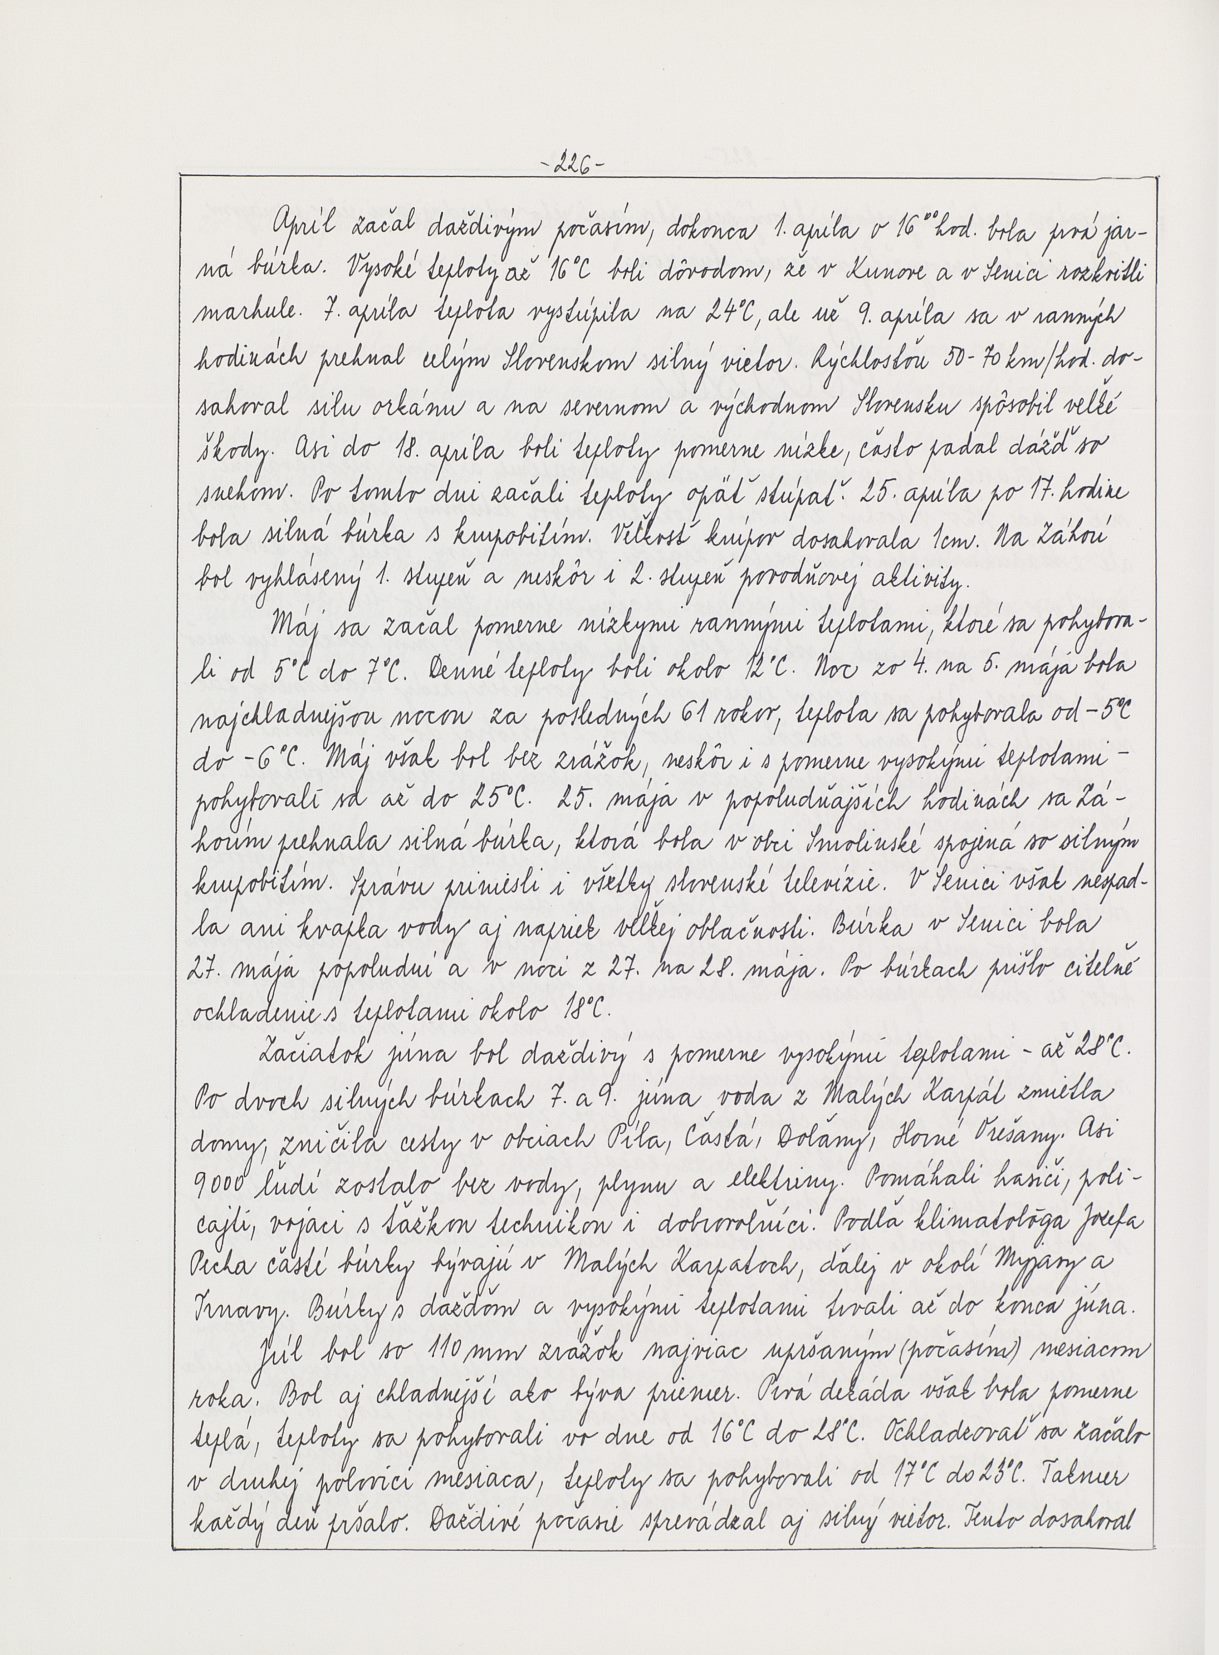 -226-
Apríl začal daždivým počasím, dokonca 1. apríla o 16⁰⁰ hod. bola prvá jar-
ná búrka. Vysoké teploty až 16°C boli dôvodom, že v Kunove a v Senici rozkvitli
marhule. 7. apríla teplota vystúpila na 24°C, ale už 9. apríla sa v ranných
hodinách prehnal celým Slovenskom silný vietor. Rýchlosťou 50-70 km/hod. do-
sahoval silu orkánu a na severnom a východnom Slovensku spôsobil veľké
škody. Asi do 18. apríla boli teploty pomerne nízke, často padal dážď so
snehom. Po tomto dni začali teploty opäť stúpať. 25. apríla po 17. hodine
bola silná búrka s krupobitím. Veľkosť krúpov dosahovala 1cm. Na Záhorí
bol vyhlásený 1. stupeň a neskôr i 2. stupeň povodňovej aktivity.
Máj sa začal pomerne nízkymi rannými teplotami, ktoré sa pohybova-
li od 5°C do 7°C. Denné teploty boli okolo 12°C. Noc zo 4. na 5. mája bola
najchladnejšou nocou za posledných 61 rokov, teplota sa pohybovala od -5°C
do -6°C. Máj však bol bez zrážok, neskôr i s pomerne vysokými teplotami -
pohybovali sa až do 25°C. 25. mája v popoludňajších hodinách sa Zá-
horím prehnala silná búrka, ktorá bola v obci Smolinské spojená so silným
krupobitím. Správu priniesli i všetky slovenské televízie. V Senici však nespad-
la ani kvapka vody aj napriek veľkej oblačnosti. Búrka v Senici bola
27. mája popoludní a v noci z 27. na 28. mája. Po búrkach prišlo citeľné
ochladenie s teplotami okolo 18°C.
Začiatok júna bol daždivý s pomerne vysokými teplotami - až 28°C.
Po dvoch silných búrkach 7. a 9. júna voda z Malých Karpát zmietla
domy, zničila cesty v obciach Píla, Častá, Doľany, Horné Orešany. Asi
9000 ľudí zostalo bez vody, plynu a elektriny. Pomáhali hasiči, poli-
cajti, vojaci s ťažkou technikou i dobrovoľníci. Podľa klimatológa Jozefa
Pecha časté búrky bývajú v Malých Karpatoch, ďalej v okolí Myjavy a
Trnavy. Búrky s dažďom a vysokými teplotami trvali až do konca júna.
Júl bol so 110 mm zrážok najviac upršaným (počasím) mesiacom
roka. Bol aj chladnejší ako býva priemer. Prvá dekáda však bola pomerne
teplá, teploty sa pohybovali vo dne od 16°C do 28°C. Ochladzovať sa začalo
v druhej polovici mesiaca, teploty sa pohybovali od 17°C do 23°C. Takmer
každý deň pršalo. Daždivé počasie sprevádzal aj silný vietor. Tento dosahoval